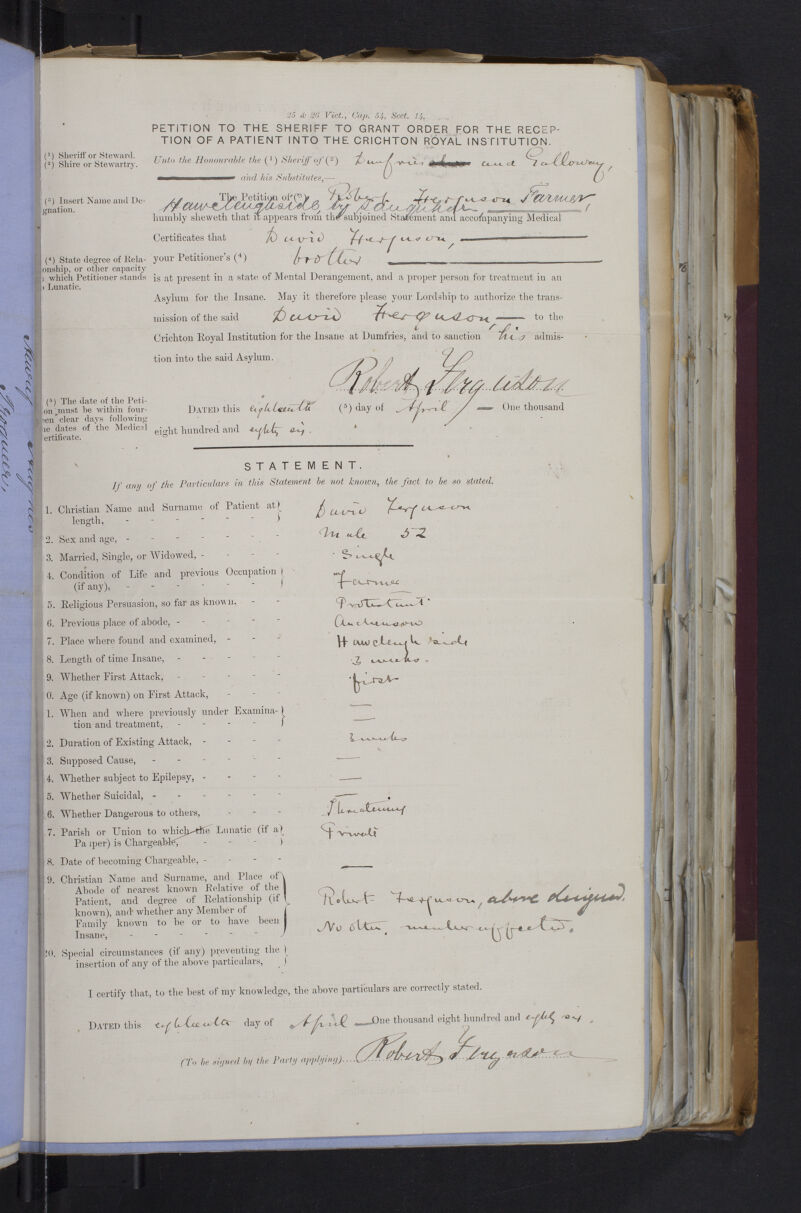 25 & 26 Vict., Cap. 54, Sect. 14.
PETITION TO THE SHERIFF TO GRANT ORDER FOR THE RECEP-
TION OF A PATIENT INTO THE CRICHTON ROYAL INSTITUTION.
(¹) Sheriff or Steward.
(²) Shire or Stewartry.
Unto the Honourable the (¹) Sheriff of (²) Dumfries and Galloway,
and his Substitutes,—
(³) Insert Name and De-
gnation.
The Petition of (³) Robert Ferguson Farmer,
Hawcleughside, by
humbly sheweth that it appears from the subjoined Statement and accompanying Medical
Certificates that David Ferguson,
(⁴) State degree of Rela-
onship, or other capacity
which Petitioner stands
Lunatic.
your Petitioner's (⁴) brother
is at present in a state of Mental Derangement, and a proper person for treatment in an
Asylum for the Insane. May it therefore please your Lordship to authorize the trans-
mission of the said David Ferguson, to the
Crichton Royal Institution for the Insane at Dumfries, and to sanction his admis-
sion into the said Asylum.
Robert Ferguson
(⁵) The date of the Peti-
on must be within four-
een clear days following
he dates of the Medical
ertificate.
DATED this eighteenth (⁵) day of April — One thousand
eight hundred and eighty six.
STATEMENT.
If any of the Particulars in this Statement be not known, the fact to be so stated.
1. Christian Name and Surname of Patient at length, - David Ferguson
2. Sex and age, - Male 52
3. Married, Single, or Widowed, - Single
4. Condition of Life and previous Occupation (if any), - Farmer
5. Religious Persuasion, so far as known, - Protestant
6. Previous place of abode, -
7. Place where found and examined, - Hawcleughside
8. Length of time Insane, - 3 weeks.
9. Whether First Attack, - first
0. Age (if known) on First Attack, - —
1. When and where previously under Examina-tion and treatment, - —
2. Duration of Existing Attack, - 3 weeks
3. Supposed Cause, - —
4. Whether subject to Epilepsy, - —
5. Whether Suicidal, - —
6. Whether Dangerous to others, - Threatening
7. Parish or Union to which the Lunatic (if a Pauper) is Chargeable, - Private
8. Date of becoming Chargeable, - —
9. Christian Name and Surname, and Place of
Abode of nearest known Relative of the
Patient, and degree of Relationship (if
known), and whether any Member of
Family known to be or to have been
Insane, -
Robert Ferguson, above designed.
No other member affected.
20. Special circumstances (if any) preventing the
insertion of any of the above particulars,
I certify that, to the best of my knowledge, the above particulars are correctly stated.
DATED this eighteenth day of April —One thousand eight hundred and eighty six.
(To be signed by the Party applying) Robert Ferguson